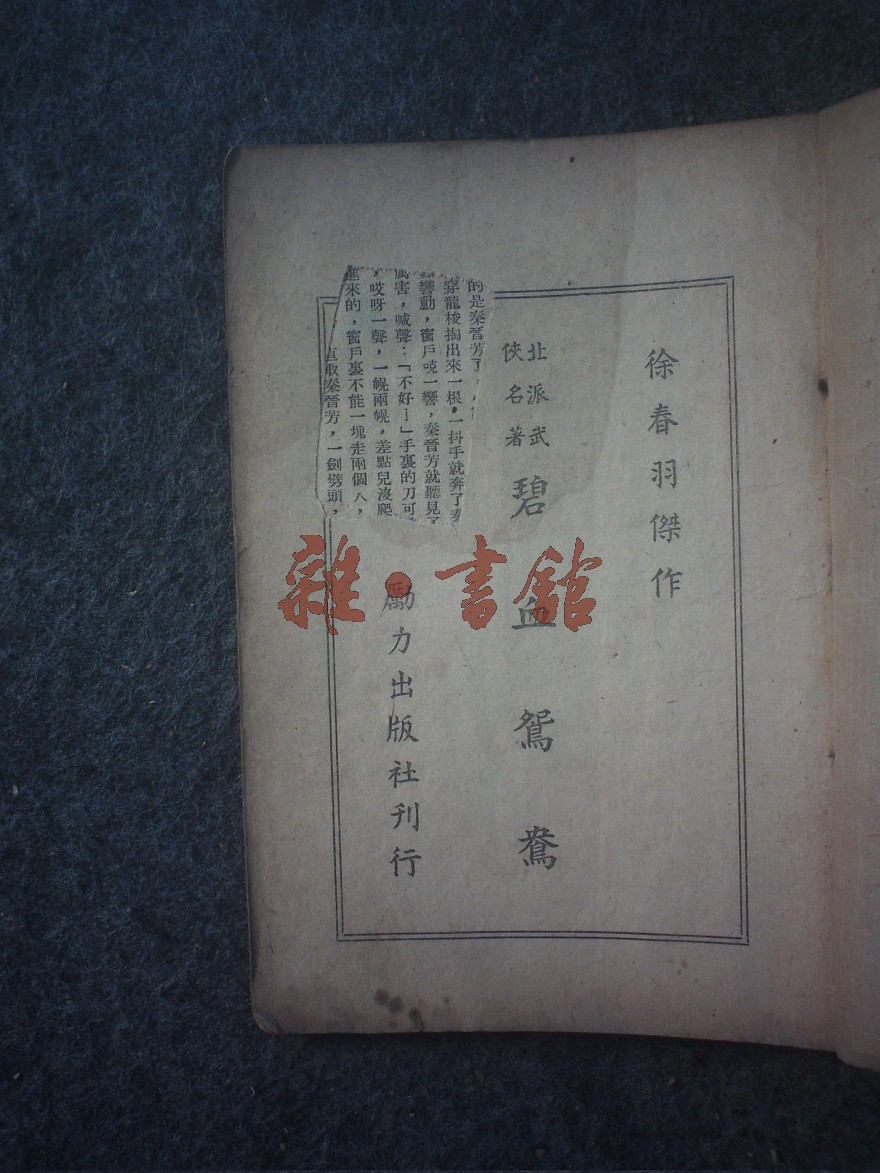 徐春羽傑作
北派武
俠名著
碧血鴛鴦
勵力出版社刊行
的是秦晉芳了
穿龍梭掏出來一根，一抖手就奔了
響動，窗戶吱一響，秦晉芳就聽見了
厲害，喊聲：「不好！」手裏的刀可
，哎呀一聲，一幌兩幌，差點兒沒爬
進來的，窗戶裏不能一塊走兩個人，
直取秦晉芳，一劍劈頭，
雜·書館